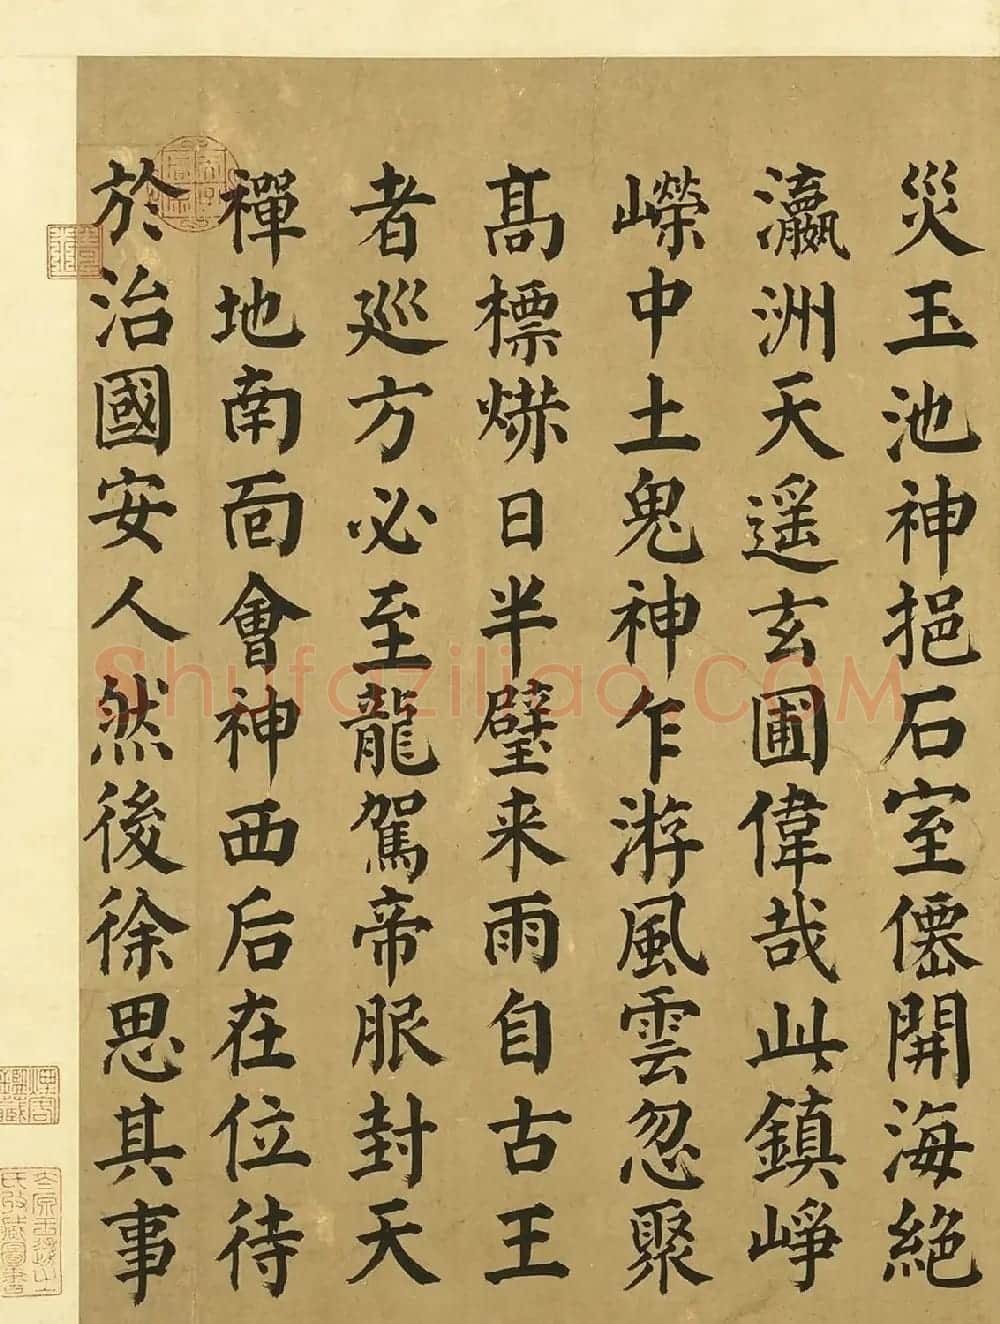 災玉池神挹石室僊開海絶
瀛洲天遥玄圃偉哉此鎮崢
嶸中土鬼神乍游風雲忽聚
髙標爀日半壁来雨自古王
者廵方必至龍駕帝服封天
禪地南面會神西后在位待
於治國安人然後徐思其事
Shufaziliao.COM